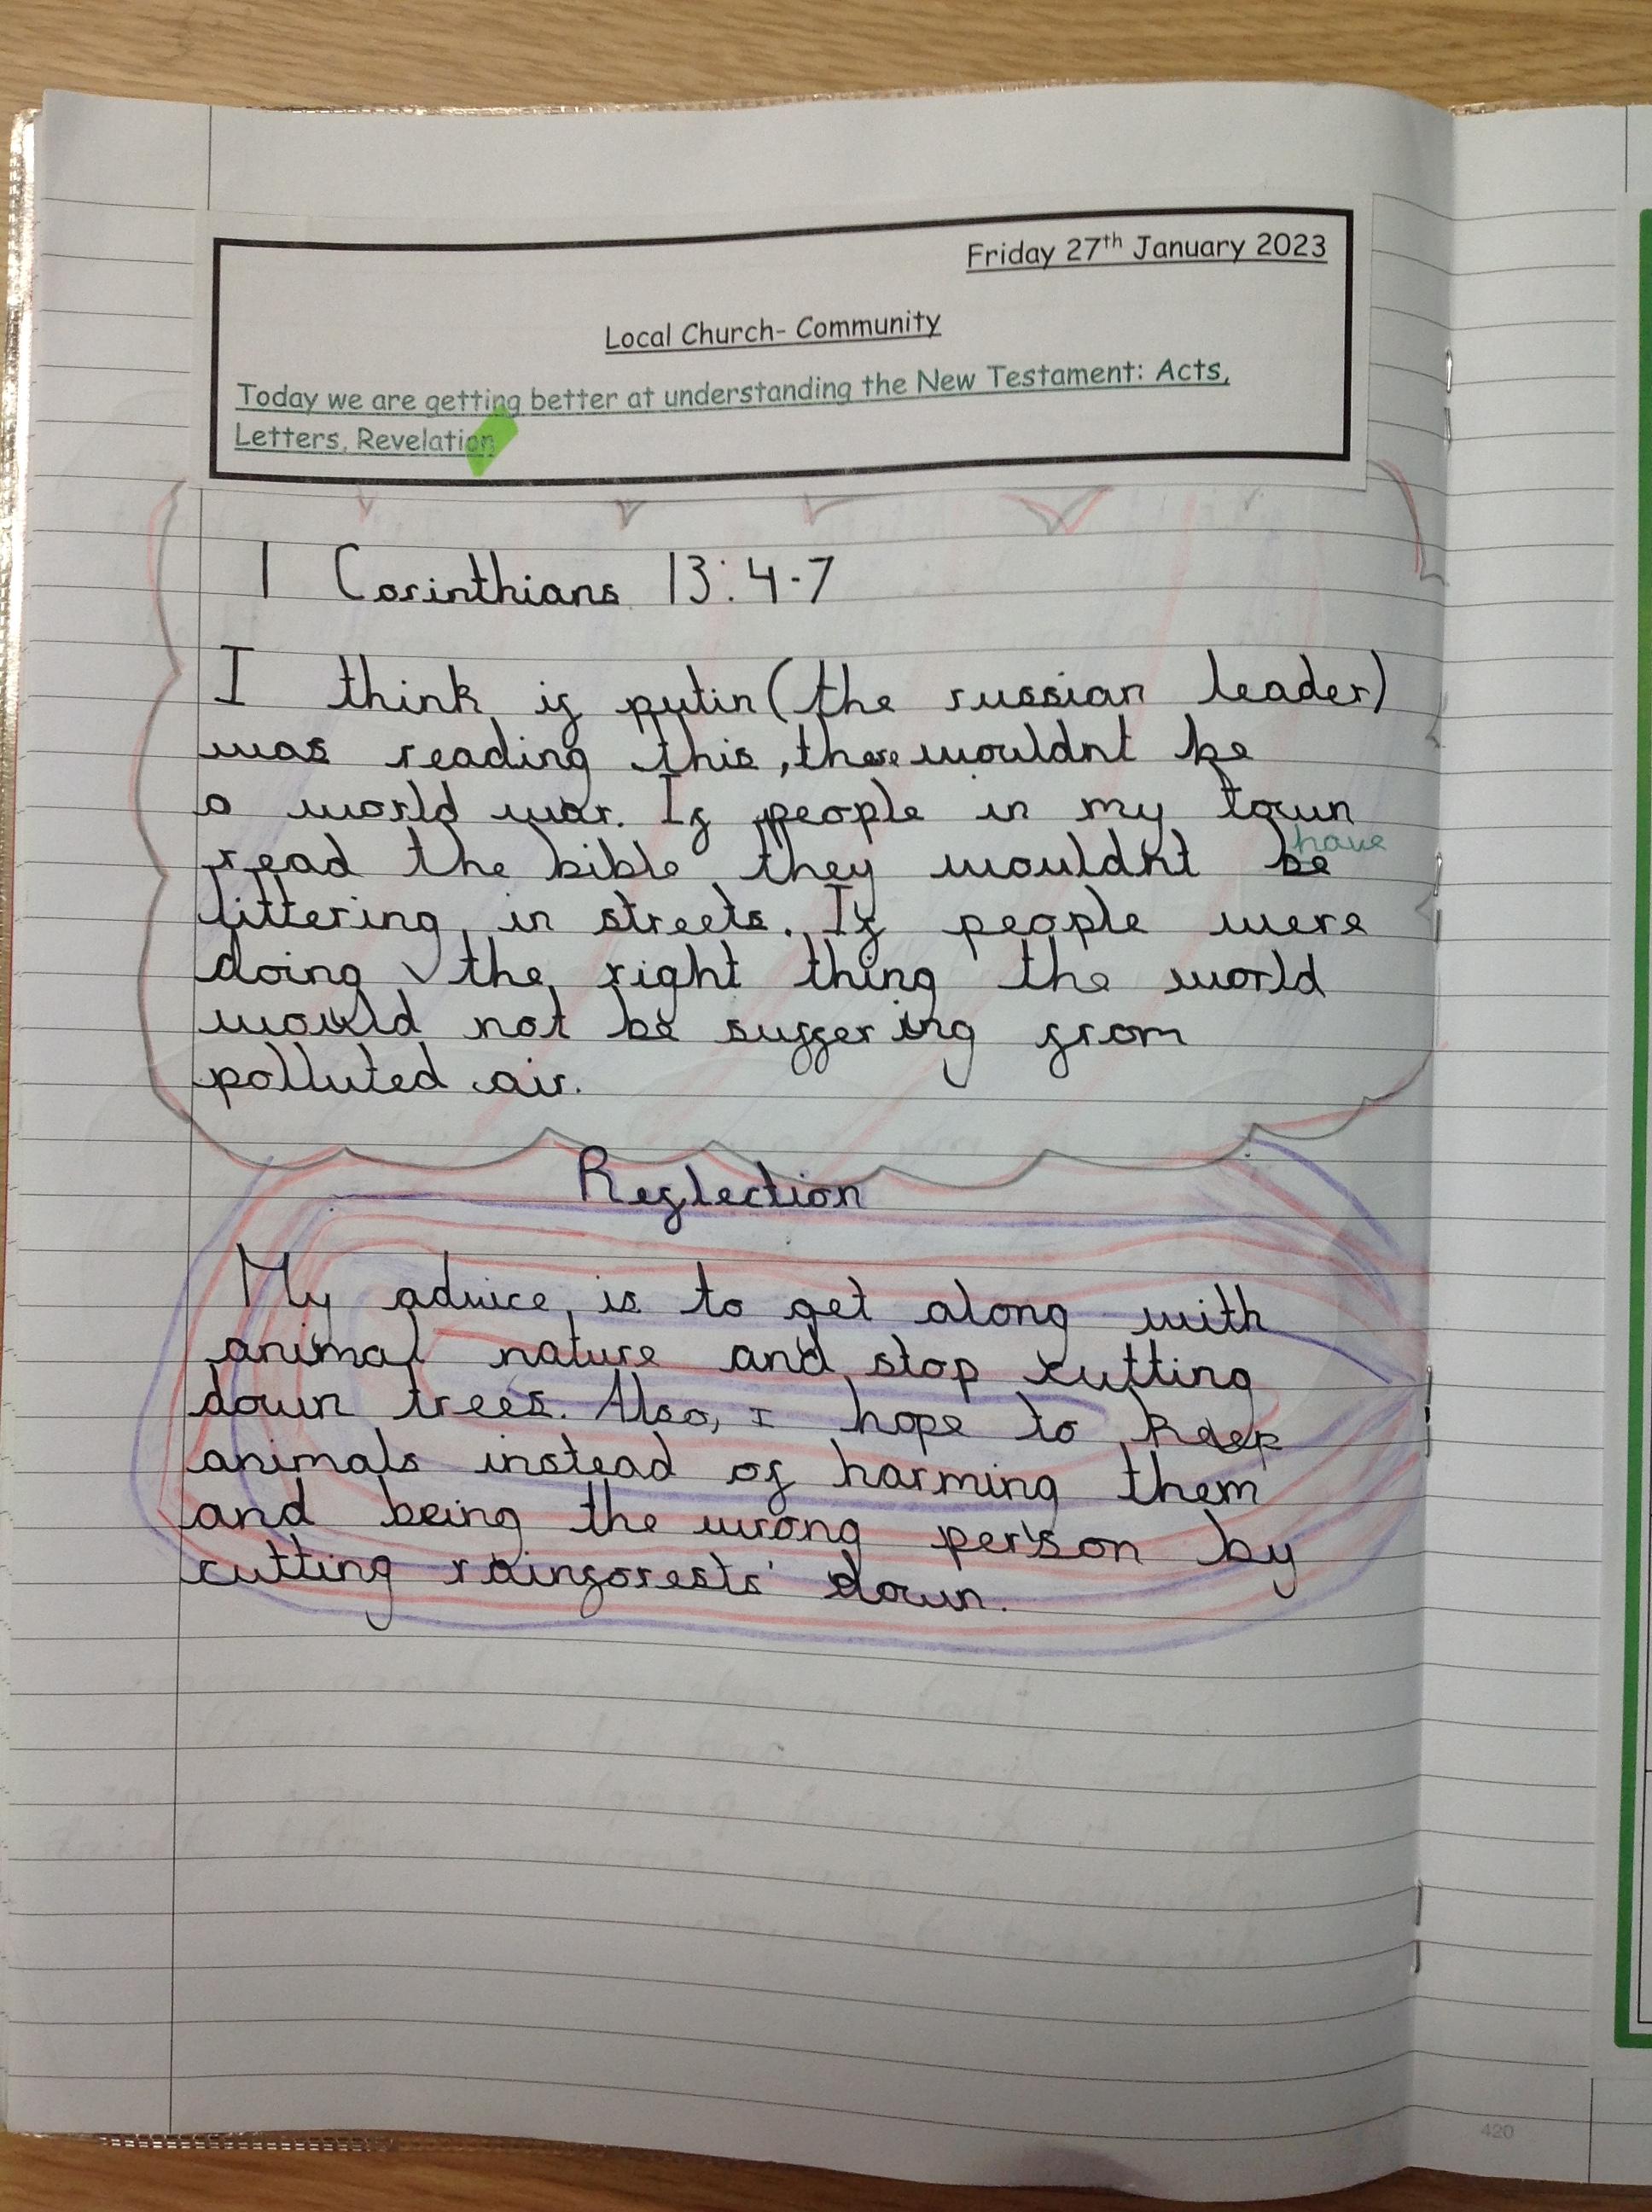 Friday 27th January 2023
Local Church- Community
Today we are getting better at understanding the New Testament: Acts,
Letters, Revelation
1 Corinthians 13:4-7
I think if putin (the russian leader)
was reading this, there wouldnt be
a world war. If people in my town
have
read the bible they wouldnt be
littering in streets. If people were
doing the right thing the world
would not be suffering from
polluted air.
Reflection
My advice is to get along with
animal nature and stop cutting
down trees. Also, I hope to keep
animals instead of harming them
and being the wrong person by
cutting rainforests down.
420